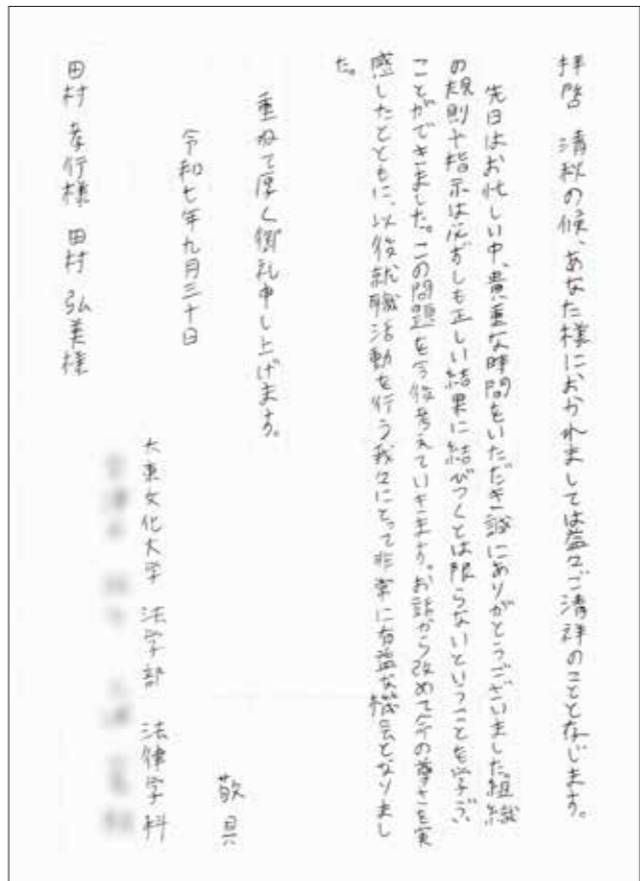 拝啓 清秋の候、あなた様におかれましては益々ご清祥のことと存じます。
先日はお忙しい中、貴重な時間をいただき誠にありがとうございました。組織
の規則や指示は必ずしも正しい結果に結びつくとは限らないということを学ぶ
ことができました。この問題を今後考えていきます。お話から改めて命の尊さを実
感したとともに、以後就職活動を行う我々にとって非常に有益な機会となりまし
た。
重ねて厚く御礼申し上げます。
敬具
令和七年九月三十日
大東文化大学 法学部 法律学科
田村 孝行様 田村 弘美様